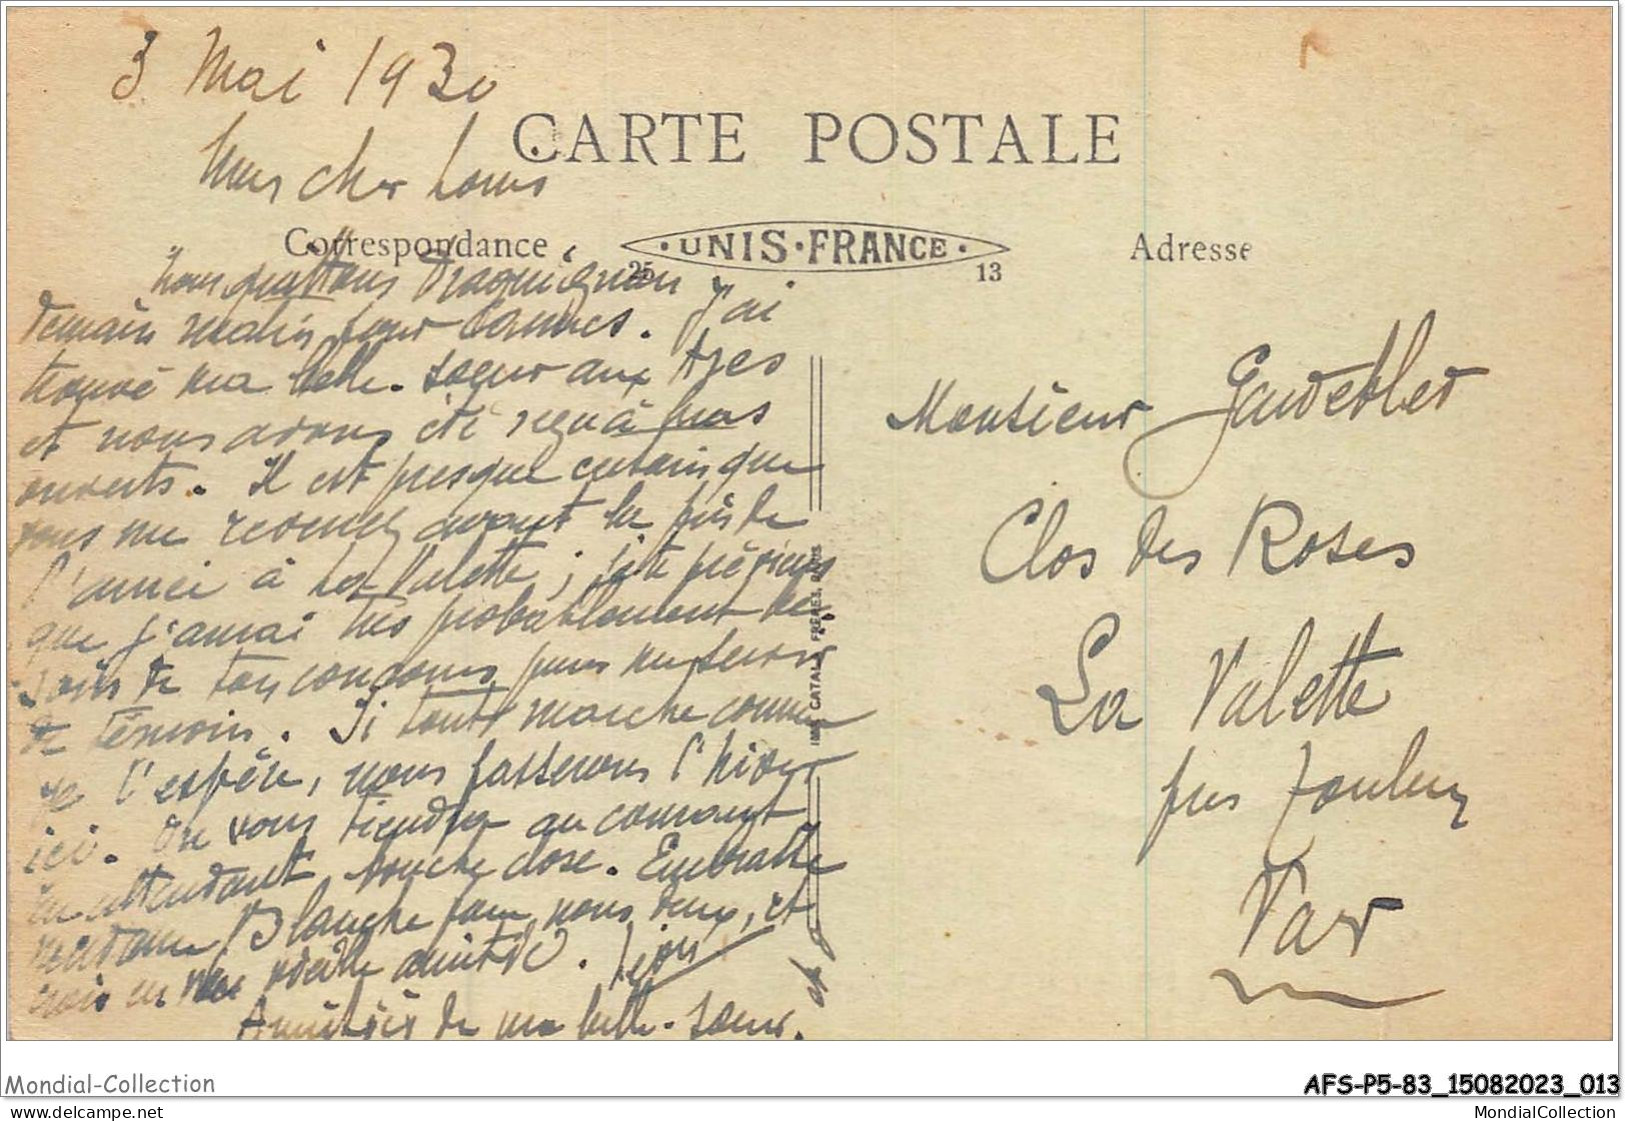 3 Mai 1930
CARTE POSTALE
Mon cher Louis
Correspondance
UNIS-FRANCE
25 13
Adresse
Nous quittons Draguignan
demain matin pour Cannes. J'ai
trouvé ma belle-soeur aux Arcs
et nous avons été reçu à bras
ouverts. Il est presque certain que
vous me reverrez avant la fin de
l'année à La Valette; je te préviens
que j'aurai très probablement be-
soin de ton concours pour me servir
de témoin. Si tout marche comme
je l'espère, nous passerons l'hiver
ici. On vous tiendra au courant
en attendant, bouche close. Embrasse
madame Blanche pour nous deux, et
crois en ma vieille amitié.
Amitiés de ma belle-soeur.
Monsieur
Clos des Roses
La Valette
près Toulon
Var
IMP. CATALA FRÈRES,
Mondial-Collection
AFS-P5-83_15082023_013
www.delcampe.net
MondialCollection